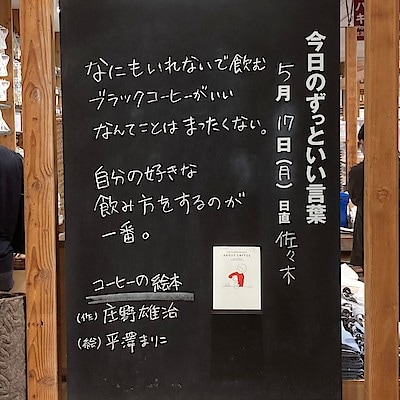 今日のずっといい言葉
5月17日(月) 日直 佐々木
なにもいれないで飲む
ブラックコーヒーがいい
なんてことはまったくない。
自分の好きな
飲み方をするのが
一番。
コーヒーの絵本
(作) 庄野雄治
(絵) 平澤まりこ